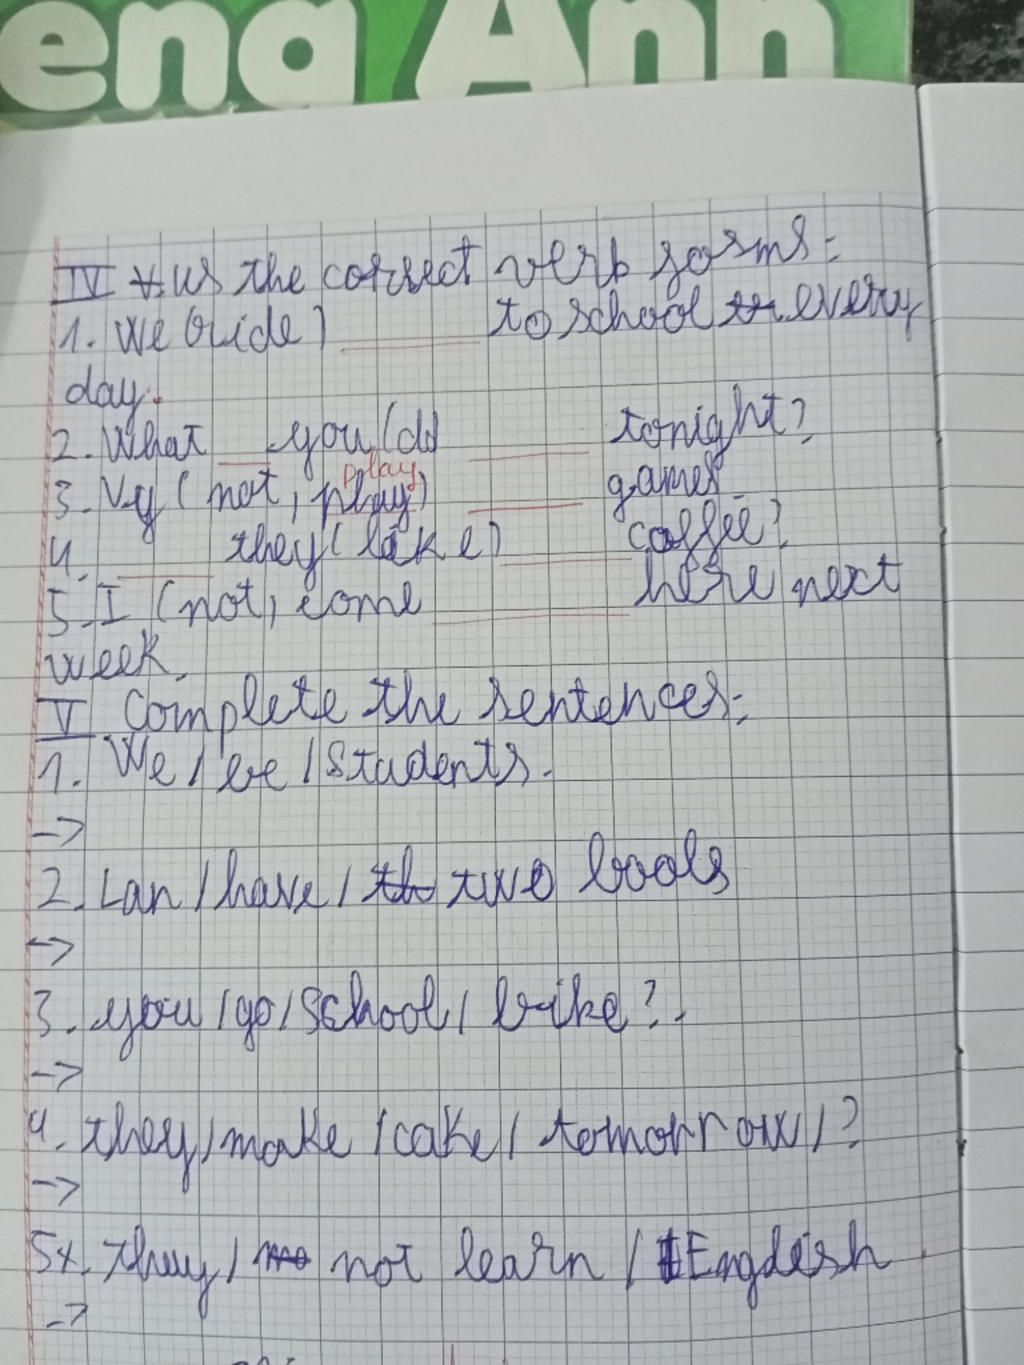 ena Ann
IV us the correct verb forms:
1. We (ride) ______ to school every
day.
2. What ___ you (do ______ tonight?
play
3. Vy ( not, play) ______ games
4. ______ they ( like ) ______ coffee?
5. I (not, come ______ here next
week.
V Complete the sentences:
1. We / be / students.
->
2. Lan / have / two books
->
3. you / go / school / bike?
->
4. they / make / cake / tomorrow / ?
->
5. they / not learn / English
->